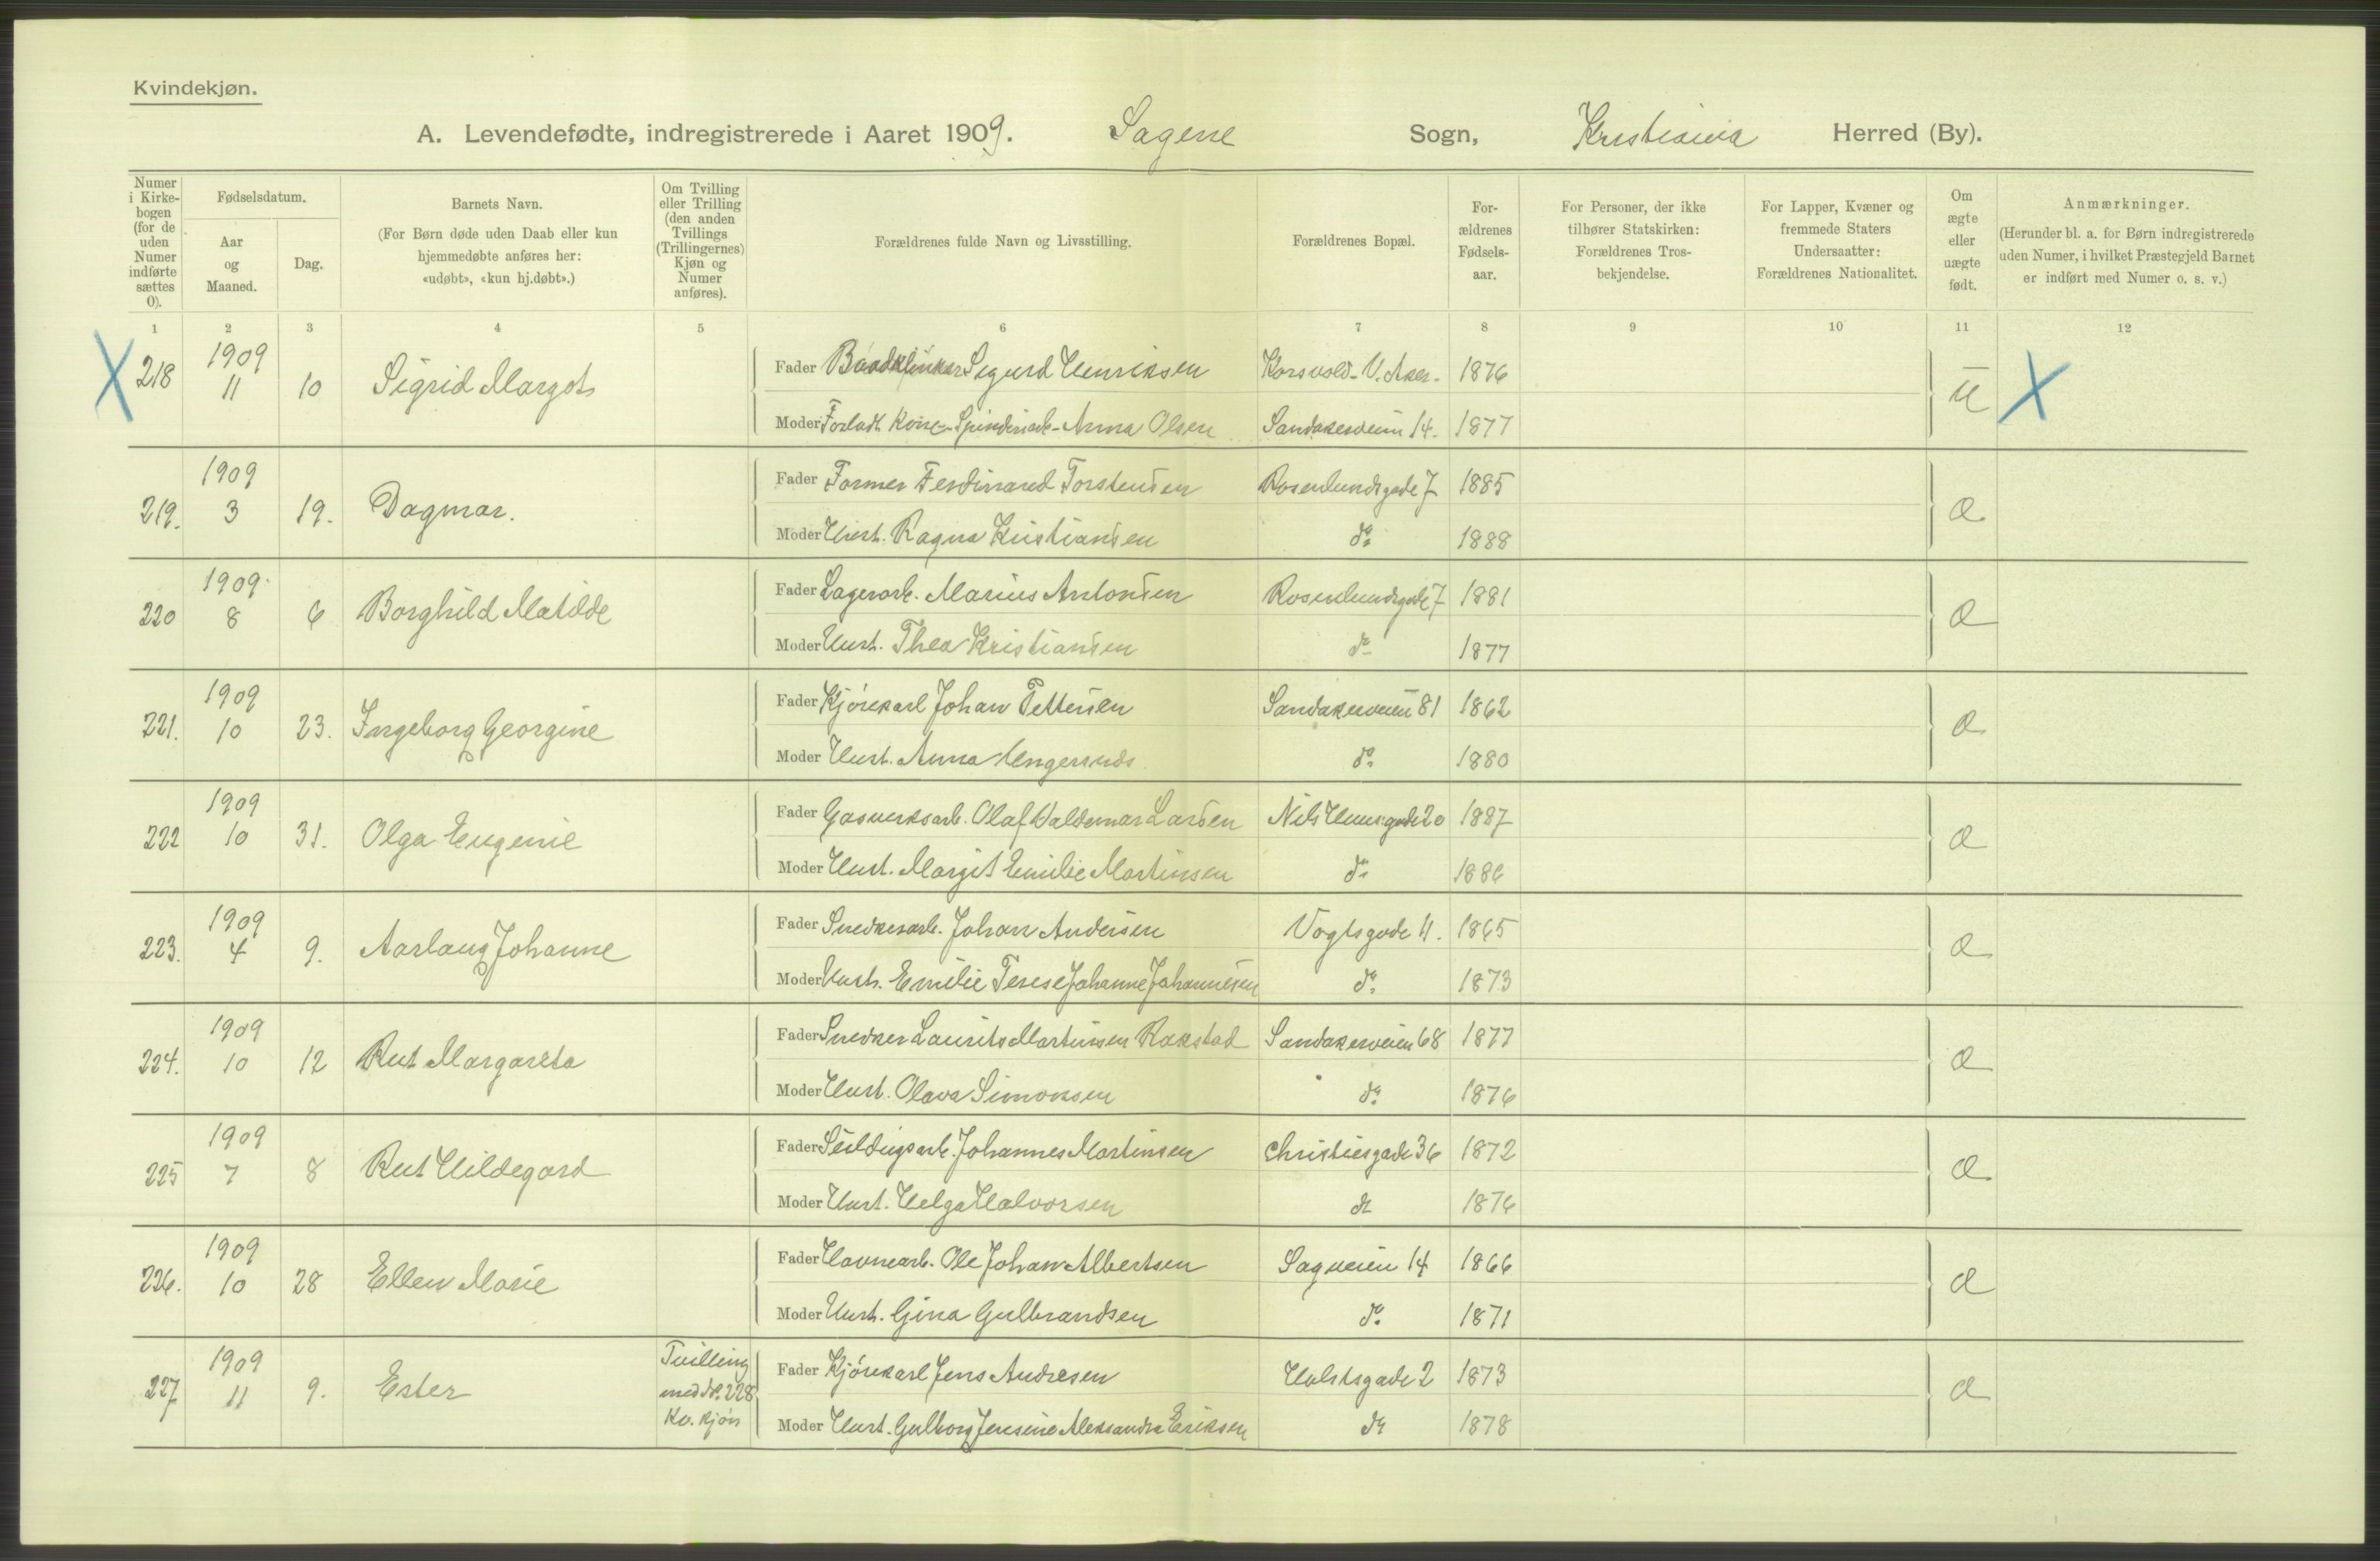 Kvindekjøn.
A. Levendefødte, indregistrerede i Aaret 1909. Sagene Sogn, Kristiania Herred (By).
Numer i Kirkebogen (for de uden Numer indførte sættes 0).
Fødselsdatum.
Aar og Maaned.
Dag.
Barnets Navn.
(For Børn døde uden Daab eller kun
hjemmedøbte anføres her:
«udøbt», «kun hj.døbt».)
Om Tvilling
eller Trilling
(den anden
Tvillings
(Trillingernes)
Kjøn og
Numer
anføres).
Forældrenes fulde Navn og Livsstilling.
Forældrenes Bopæl.
For-
ældrenes
Fødsels-
aar.
For Personer, der ikke
tilhører Statskirken:
Forældrenes Tros-
bekjendelse.
For Lapper, Kvæner og
fremmede Staters
Undersaatter:
Forældrenes Nationalitet.
Om
ægte
eller
uægte
født.
Anmærkninger.
(Herunder bl. a. for Børn indregistrerede
uden Numer, i hvilket Præstegjeld Barnet
er indført med Numer o. s. v.)
1 2 3 4 5 6 7 8 9 10 11 12
X 218 1909 11 10 Sigrid Margot U X
Fader Sigurd Henriksen Korsvold - V. Aker. 1876
Moder Forladt Kone - Spinderiarb - Anna Olsen Sandakerveien 14. 1877
219. 1909 3 19. Dagmar. Æ
Fader Former Ferdinand Torstensen Rosenlundsgade 7 1885
Moder Hust. Ragna Kristiansen do 1888
220 1909 8 6 Borghild Matilde Æ
Fader Lagerarb. Marius Antonsen Rosenlundsgade 7 1881
Moder Hust. Thea Kristiansen do 1877
221. 1909 10 23. Ingeborg Georgine Æ
Fader Kjørekarl Johan Pettersen Sandakerveien 81 1862
Moder Hust. Anna do 1880
222 1909 10 31. Olga Eugenie Æ
Fader Gasverksarb. Olaf Valdemar Larsen Nils Huusgade 20 1887
Moder Hust. Margit Emilie Martinsen do 1886
223. 1909 4 9. Aaslaug Johanne Æ
Fader Snedkerarb. Johan Andersen Vogtsgade 11. 1865
Moder Hust. Emilie Terese Johanne Johannesen do 1873
224. 1909 10 12 Rut Margareta Æ
Fader Snedker Laurits Martinsen Rakstad Sandakerveien 68 1877
Moder Hust. Olava Simonsen do 1876
225 1909 7 8 Rut Hildegard Æ
Fader Johannes Martinsen Christiesgade 36 1872
Moder Hust. Helga Halvorsen do 1876
226. 1909 10 28 Ellen Marie Æ
Fader Havnearb. Ole Johan Albertsen Sagveien 14 1866
Moder Hust. Gina Gulbrandsen do 1871
227 1909 11 9. Ester Tvilling med No. 228 Kv. kjøn Æ
Fader Kjørekarl Jens Andresen Holstsgade 2 1873
Moder Hust. Gulborg Jensine Aleksandra Eriksen do 1878